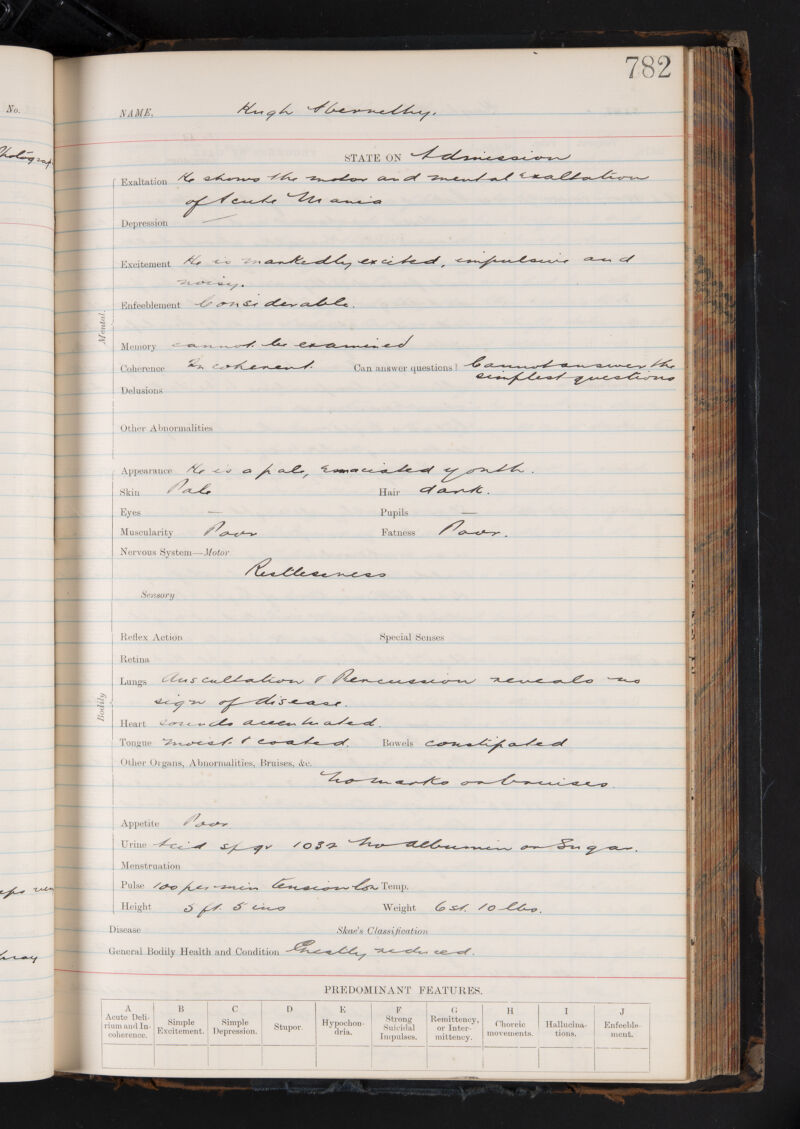 782
No.
NAME. Hugh Abernethy.
STATE ON Admission
Exaltation He shows the motor and mental exaltation
of Acute Mania
Depression —
Excitement He is markedly excited, impulsive and
noisy.
Enfeeblement Considerable.
Mental.
Memory cannot be examined
Coherence Incoherent. Can answer questions? Cannot answer the
simplest questions
Delusions
Other Abnormalities
Appearance He is a pale, emaciated youth.
Skin Pale Hair dark.
Eyes — Pupils —
Muscularity Poor Fatness Poor.
Nervous System—Motor
Restlessness
Sensory
Reflex Action Special Senses
Retina
Lungs Auscultation & Percussion reveals no
sign of disease.
Bodily
Heart sounds accentuated.
Tongue moist & coated. Bowels constipated
Other Organs, Abnormalities, Bruises, &c.
No marks or bruises.
Appetite Poor
Urine Acid sp gr 1032 No albumin or Sugar.
Menstruation
Pulse 100 per min tension low Temp.
Height 5 ft. 5 ins Weight 6 st. 10 lbs.
Disease Skae's Classification
General Bodily Health and Condition Greatly reduced.
PREDOMINANT FEATURES.
A B C D E F G H I J
Acute Deli- Simple Simple Stupor. Hypochon- Strong Remittency, Choreic Hallucina- Enfeeble-
rium and In- Excitement. Depression. dria. Suicidal or Inter- movements. tions. ment.
coherence. Impulses. mittency.